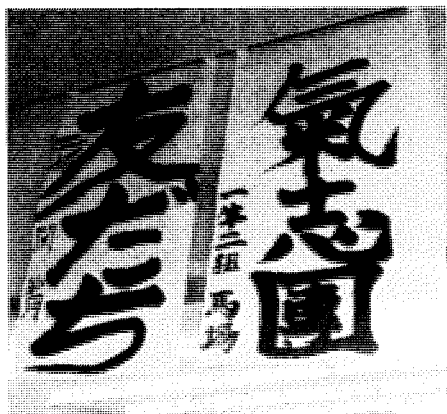 氣志團
一年二組 馬場
友だち